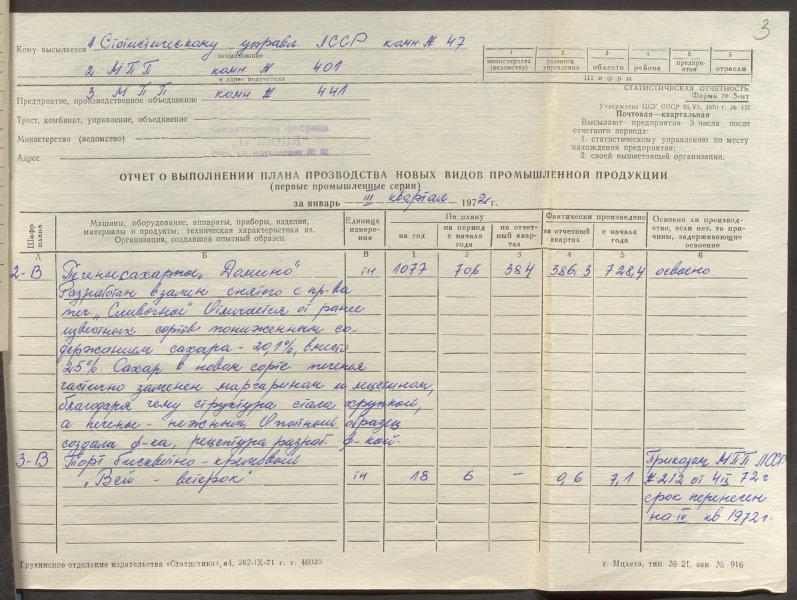 3
Кому высылается 1. Статистическому управл. ЛССР комн № 47
наименование
2. МПП комн № 401
и адрес получателя
3. МПП комн № 441
1 2 3 4 5 6
министерства (ведомства) главного управления области района предпри- ятия отрасли
Шифры
Предприятие, производственное объединение
Трест, комбинат, управление, объединение
Министерство (ведомство)
Адрес
Кондитерская фабрика
СТАТИСТИЧЕСКАЯ ОТЧЕТНОСТЬ
Форма № 5-нт
Утверждена ЦСУ СССР 25.VI. 1970 г. №
Почтовая—квартальная
Высылают предприятия 3 числа после
отчетного периода:
1. статистическому управлению по месту
нахождения предприятия;
2. своей вышестоящей организации.
ОТЧЕТ О ВЫПОЛНЕНИИ ПЛАНА ПРОЗВОДСТВА НОВЫХ ВИДОВ ПРОМЫШЛЕННОЙ ПРОДУКЦИИ
(первые промышленные серии)
за январь — III квартал — 1972 г.
Шифр плана
Машины, оборудование, аппараты, приборы, изделия,
материалы и продукты; техническая характеристика их.
Организация, создавшая опытный образец
Единица измере- ния
По плану
на год на период с начала года на отчет- ный квар- тал
Фактически произведено
за отчетный квартал с начала года
Освоено ли производ-
ство, если нет, то при-
чины, задерживающие
освоение
А Б В 1 2 3 4 5 6
2-В Печенье сахарное „Домино" тн 1077 706 384 386,3 728,4 освоено
Разработан взамен снятого с пр-ва
печ „Сливочной" Отличается от ранее
известных сортов пониженным со-
держанием сахара - 20,1%, вместо
25%. Сахар в новом сорте печенья
частично заменен маргарином и лецетином,
благодаря чему структура стала хрупкой,
а печенье - нежным. Опытный образец
создала ф-ка, рецептура разраб. ф-кой.
3-В Торт бисквитно-кремовый
„Вей - ветерок" тн 18 6 — 0,6 7,1
Приказом МПП ЛССР
№ 212 от 4 IX 72 г
срок перенесен
на IV кв 1972 г.
Грузинское отделение издательства «Статистика», а4, 262-IX-71 г. т. 46020
г. Мцхета, тип. № 21, зак № 916